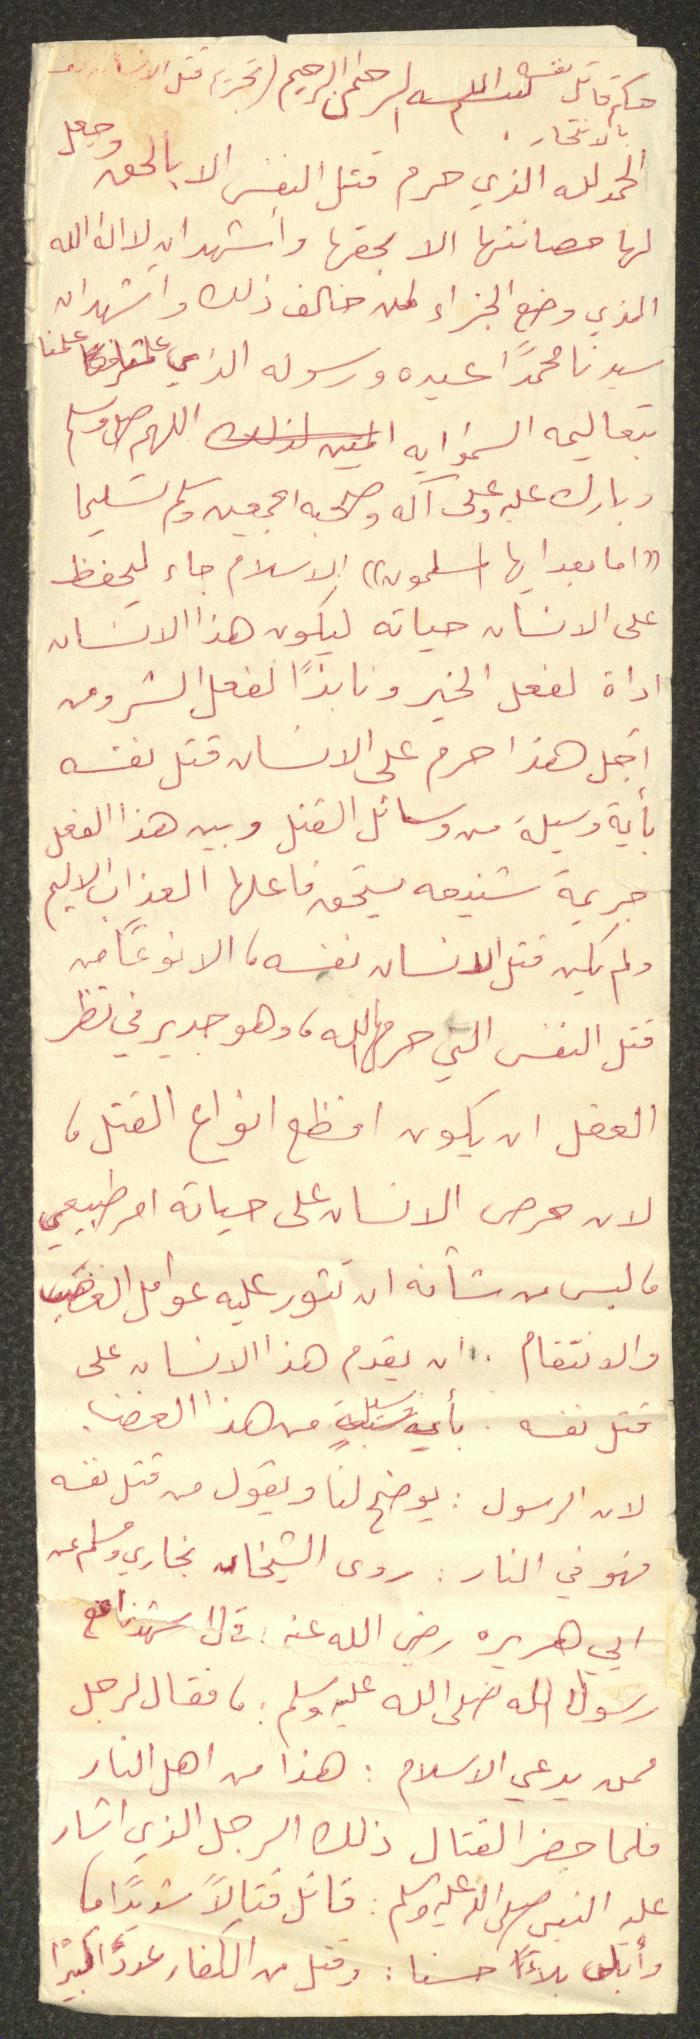 حكم قاتل نفسه بسم الله الرحمن الرحيم (تحريم قتل الانسان
بالانتحار.
الحمد لله الذي حرم قتل النفس الا بالحق وجعل
لها حصانتها الا بحقها واشهد ان لا اله الا الله
الذي وضع الجزاء لمن خالف ذلك واشهد ان
سيدنا محمدًا عبده ورسوله الذي علمنا
بتعاليمه السموايه اللهم صل وسلم
وبارك عليه وعلى آله وصحبه اجمعين وسلم تسليما
((اما بعد ايها المسلمون)) الاسلام جاء ليحفظ
على الانسان حياته ليكون هذا الانسان
اداة لفعل الخير ونابذًا لفعل الشر ومن
اجل هذا حرم على الانسان قتل نفسه
بأية وسيلة من وسائل القتل وبين هذا الفعل
جريمة شنيعه يستحق فاعلها العذاب الاليم
ولم يكن قتل الانسان نفسه، الا نوعًا من
قتل النفس التي حرمها الله، وهو جدير في نظر
العقل ان يكون افظع انواع القتل،
لان حرص الانسان على حياته امر طبيعي
، ليس من شأنه ان تثور عليه عوامل الغضب
والانتقام . ان يقدم هذا الانسان على
قتل نفسه . بأية وسيلة من هذا الغضب.
لان الرسول : يوضح لنا ويقول من قتل نفسه
فهو في النار : روى الشيخان بخاري ومسلم عن
ابي هريره رضي الله عنه : قال شهدنا مع
رسول الله صلى الله عليه وسلم : ، فقال لرجل
ممن يدعي الاسلام : هذا من اهل النار
فلما حضر القتال ذلك الرجل الذي اشار
عليه النبي صلى الله عليه وسلم : قاتل قتالاً شديدًا،
وأبلى بلاءًا حسنا : وقتل من الكفار عددًا كبيرًا